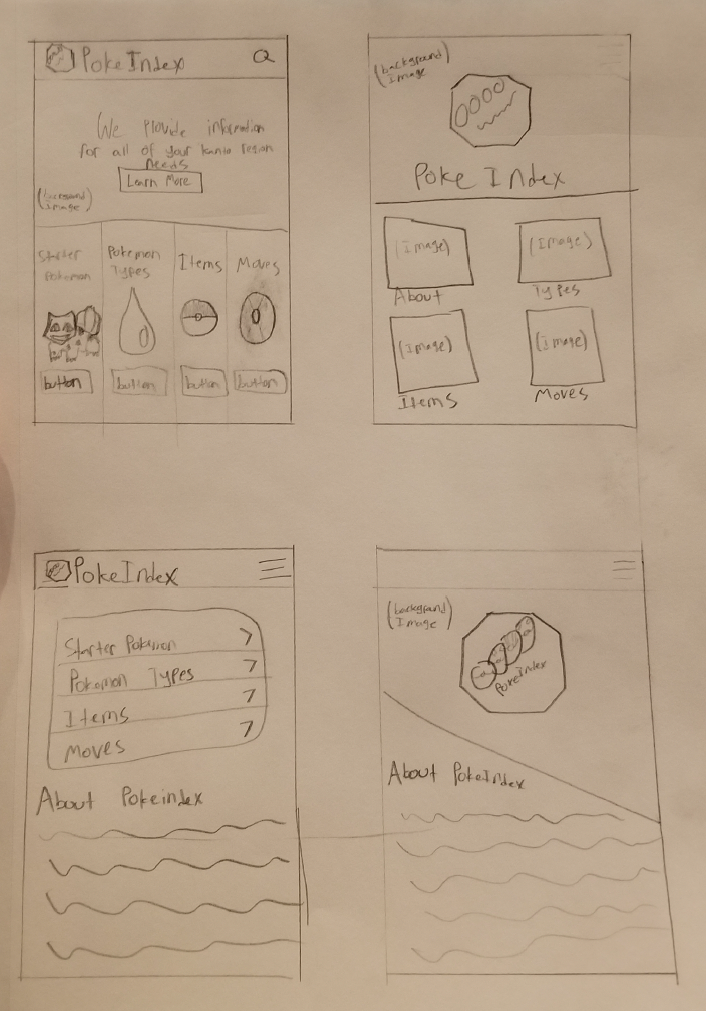 PokeIndex
We Provide information
for all of your kanto region
Needs
Learn More
(background
Image)
Starter
Pokemon
Pokemon
Types
Items
Moves
button
button
button
button
(background
Image)
Poke Index
(Image)
(Image)
About
Types
(Image)
(Image)
Items
Moves
PokeIndex
Starter Pokemon
Pokemon Types
Items
Moves
About Pokeindex
(background
Image)
PokeIndex
About PokeIndex